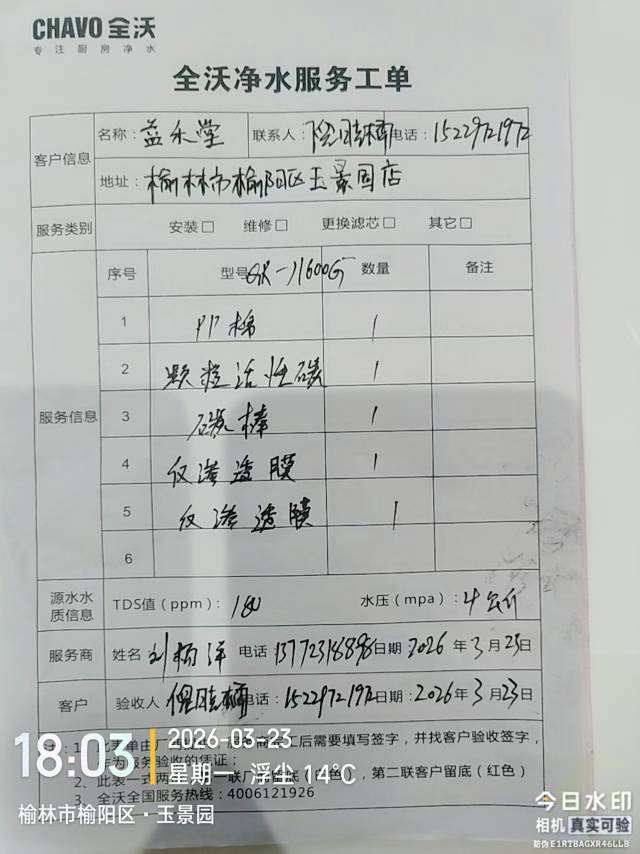 CHAVO 全沃
专注厨房净水
全沃净水服务工单
客户信息
名称：益禾堂 联系人： 电话：15229721972
地址：榆林市榆阳区玉景园店
服务类别 安装□ 维修□ 更换滤芯□ 其它□
服务信息
序号 型号 数量 备注
1 PP棉 1
2 颗粒活性碳 1
3 碳棒 1
4 反渗透膜 1
5 反渗透膜 1
6
源水水质信息 TDS值（ppm）：180 水压（mpa）：4公斤
服务商 姓名 刘杨洋 电话 日期 2026年3月23日
客户 验收人 电话：15229721972 日期：2026年3月23日
后需要填写签字，并找客户验收签字，
作为服务验收的凭证；
2、此表一式两 第二联客户留底（红色）
3、全沃全国服务热线：4006121926
18:03
2026-03-23
星期一 浮尘 14℃
榆林市榆阳区·玉景园
今日水印
相机 真实可验
防伪 E1RTBAGXR46LLB